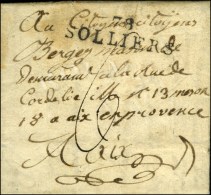 Au Citoyen citoyen
78
SOLLIERS
Demeurant a la Rue de
Cordelie N° 13 maison
18 a aix en provence
Aix